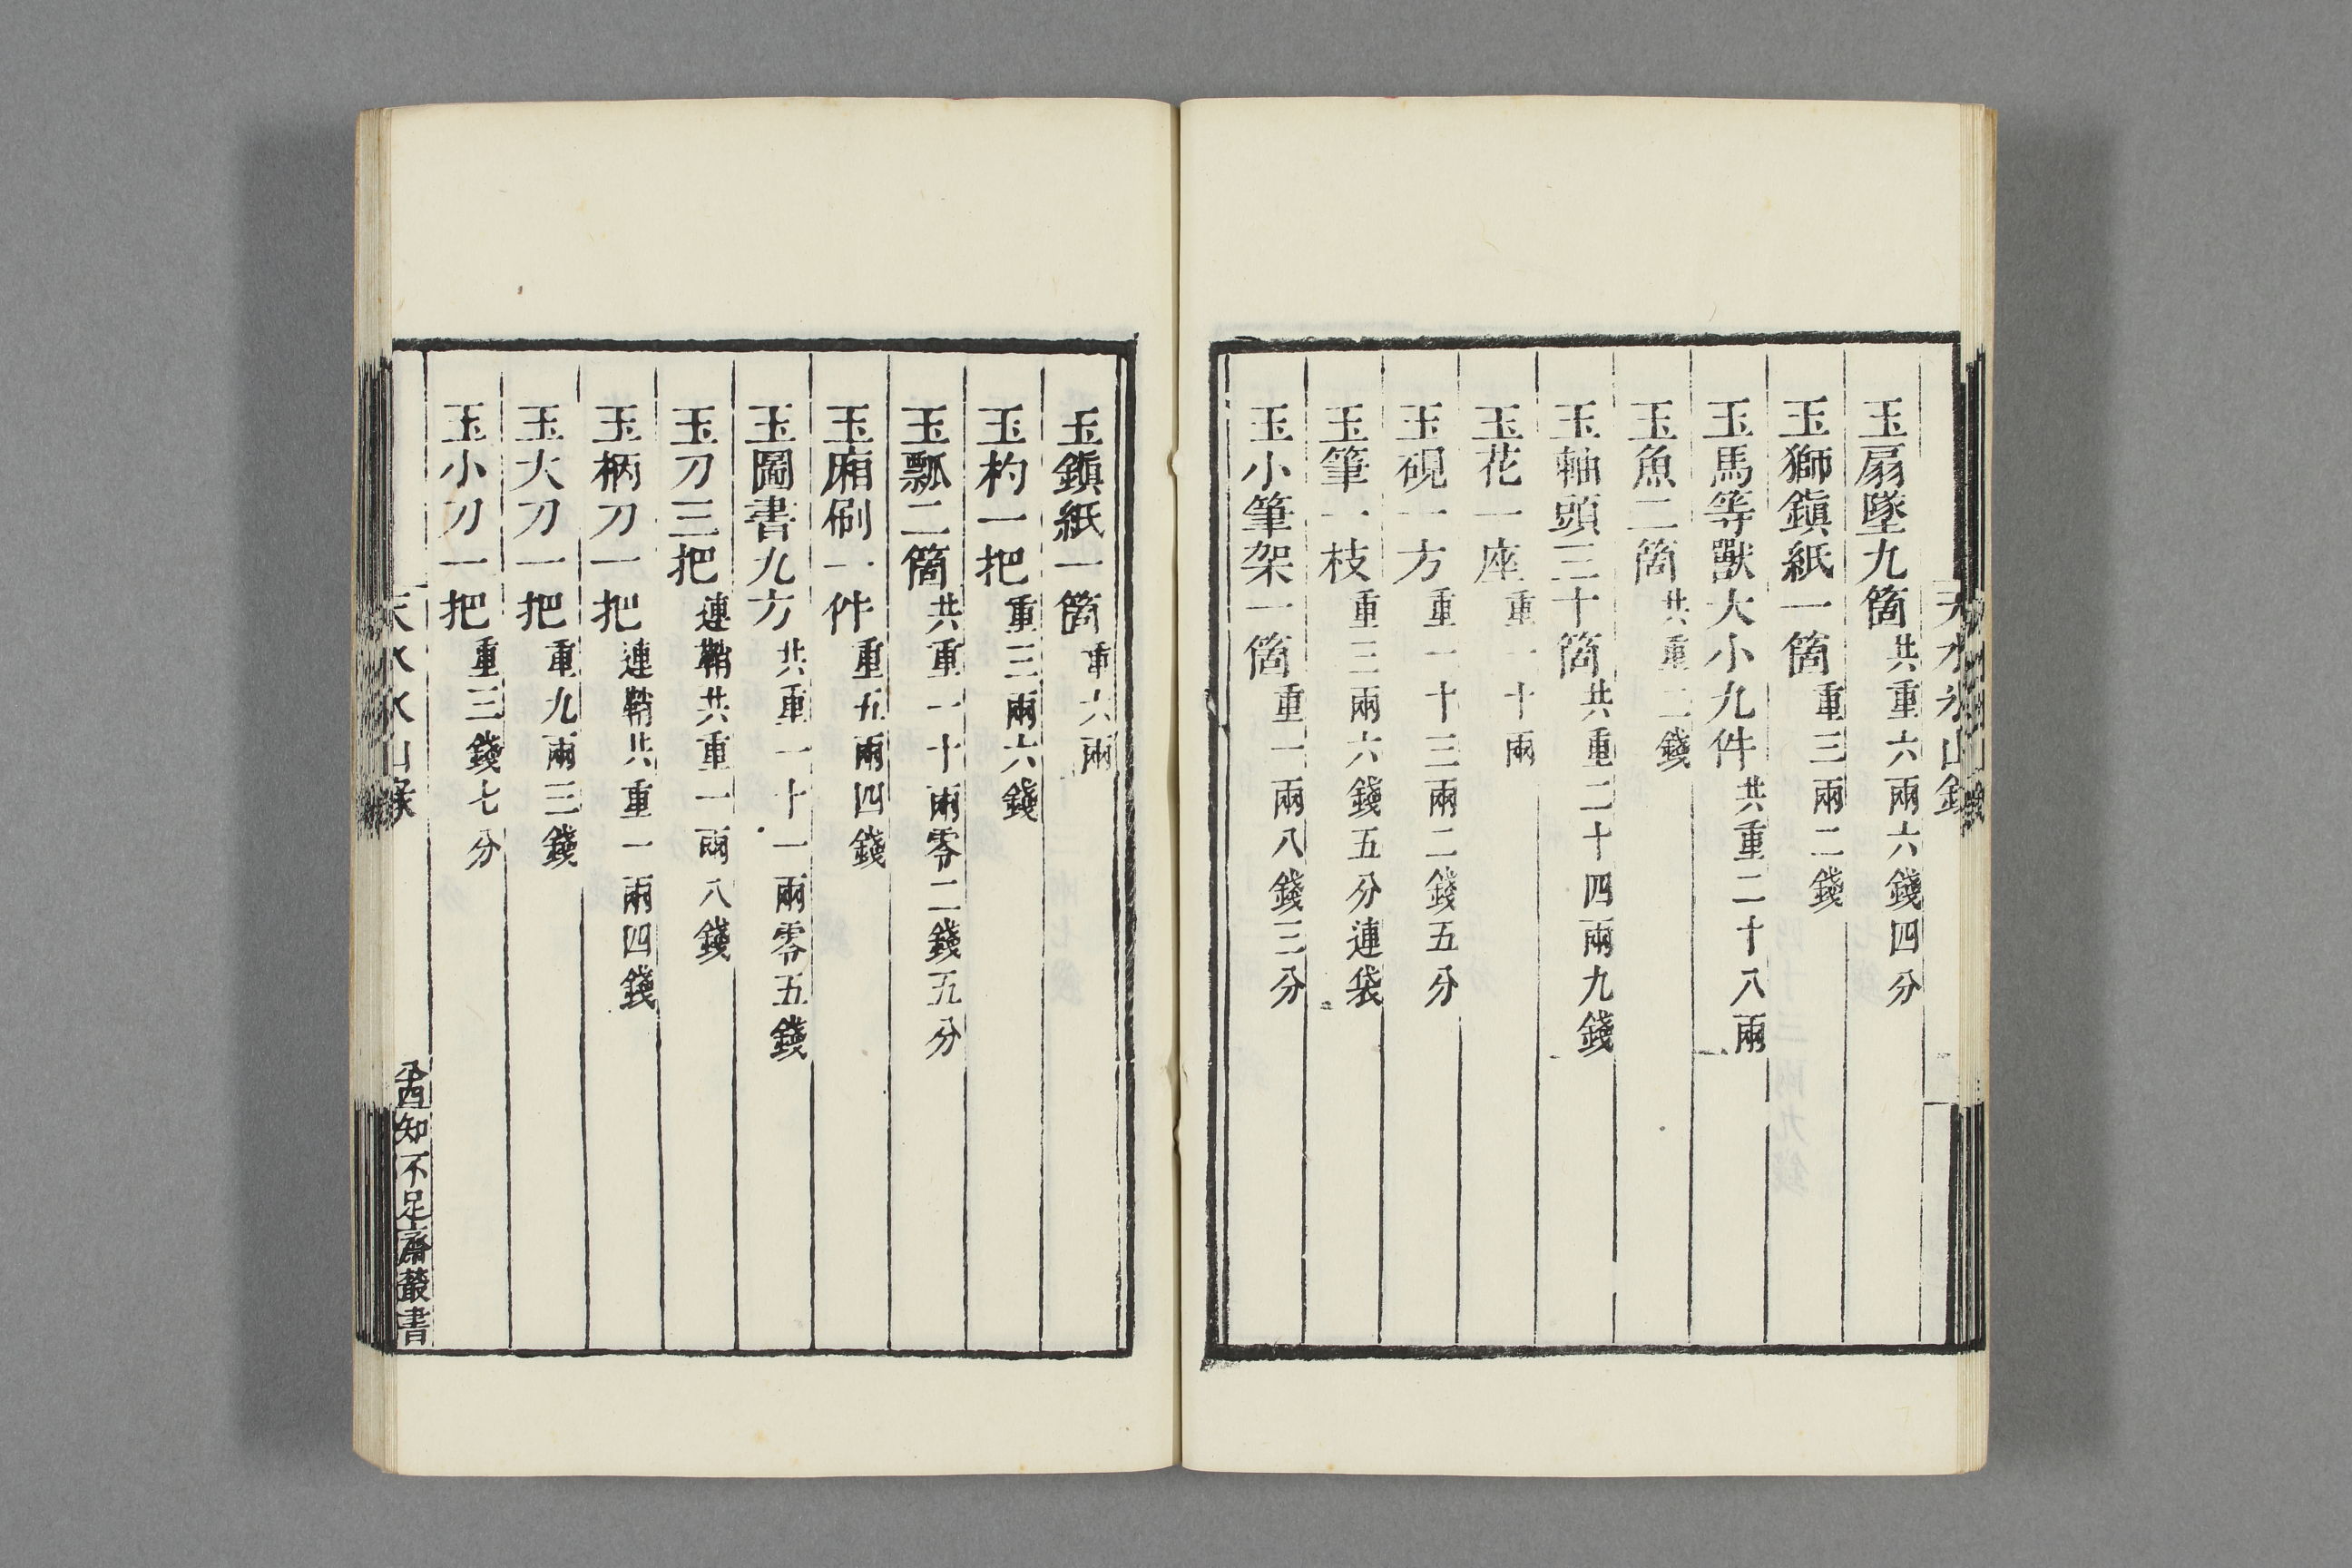 天水冰山錄
玉扇墜九箇共重六兩六錢四分
玉獅鎭紙一箇重三兩二錢
玉馬等獸大小九件共重二十八兩
玉魚二箇共重二錢
玉軸頭三十箇共重二十四兩九錢
玉花一座重一十兩
玉硯一方重一十三兩二錢五分
玉筆一枝重三兩六錢五分連袋
玉小筆架一箇重一兩八錢三分
玉鎭紙一箇重六兩
玉杓一把重三兩六錢
玉瓢二箇共重一十兩零二錢五分
玉廂刷一件重五兩四錢
玉圖書九方共重一十一兩零五錢
玉刀三把連鞘共重一兩八錢
玉柄刀一把連鞘共重一兩四錢
玉大刀一把重九兩三錢
玉小刀一把重三錢七分
天水冰山錄
知不足齋叢書